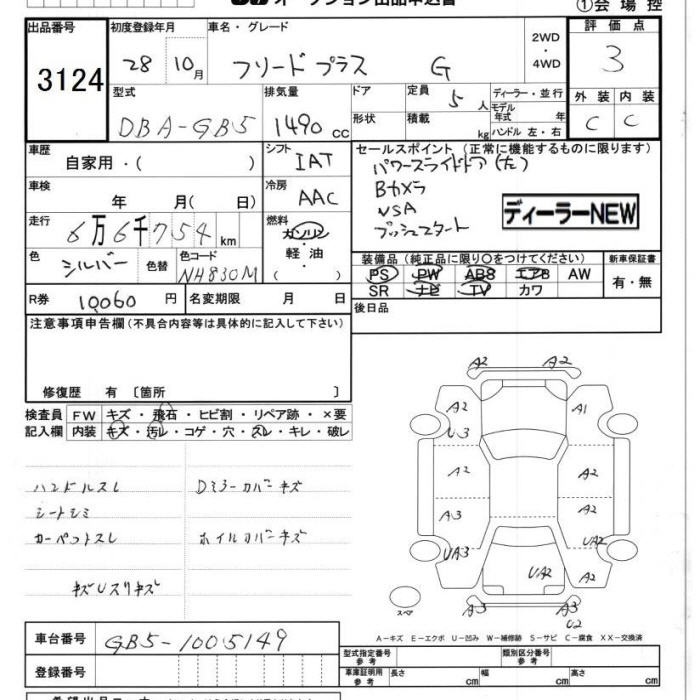 オークション出品申込書
①会場控
出品番号
3124
初度登録年月
28 10月
車名・グレード
フリードプラス G
2WD
・
4WD
評価点
3
型式
DBA-GB5
排気量
1490 cc
ドア
形状
定員
5 人
積載
kg
ディーラー・並行
モデル
年式 年
ハンドル 左・右
外装 内装
C C
車歴
自家用・( )
シフト
IAT
セールスポイント (正常に機能するものに限ります)
パワースライドドア(左)
Bカメラ
VSA
プッシュスタート
ディーラーNEW
車検
年 月( 日)
冷房
AAC
走行
6万6千754km
燃料
ガソリン
・
軽油
( )
色
シルバー
色替
色コード
NH830M
装備品 (純正品に限り○をつけてください)
新車保証書
PS PW ABS エアB AW
SR ナビ TV カワ
有・無
R券 10,060 円
名変期限 月 日
後日品
注意事項申告欄(不具合内容等は具体的に記入して下さい)
修復歴 有 〔箇所 〕
検査員
記入欄
FW キズ・飛石・ヒビ割・リペア跡・×要
内装 キズ・汚レ・コゲ・穴・スレ・キレ・破レ
ハンドルスレ Dミラーカバーキズ
シートシミ
カーペットスレ ホイルカバーキズ
キズUスリキズ
A2 A2
A2 A1
U3
A2 A2
A3 A2
UA3 UA2
UA2 A2
スペア
A3 A3
U2
A-キズ E-エクボ U-凹み W-補修跡 S-サビ C-腐食 XX-交換済
車台番号
GB5-1005149
登録番号
型式指定番号
参考
類別区分番号
参考
車庫証明用
参考
長さ cm
幅 cm
高さ cm